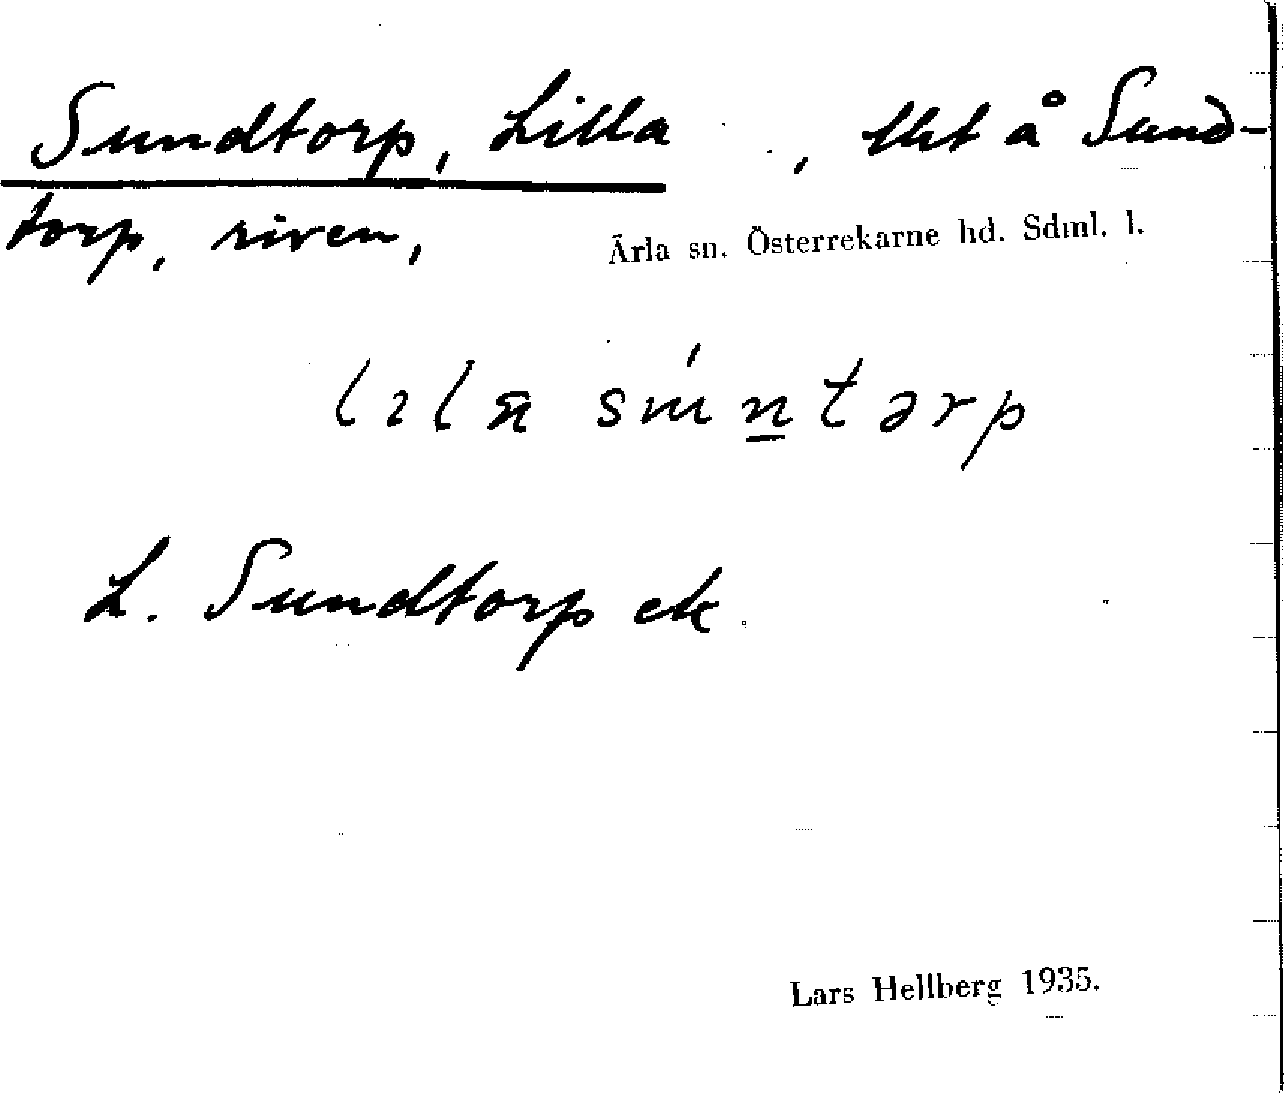 Sundtorp, Lilla, lht å Sund-
torp, riven,
Ärla sn. Österrekarne hd. Sdml. l.
L. Sundtorp ek.
Lars Hellberg 1935.